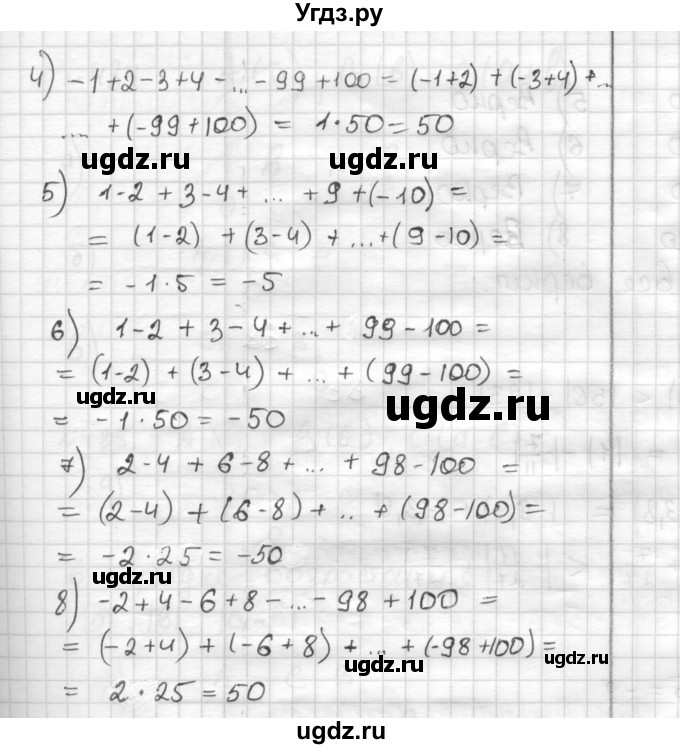 Угдз.ру
4) -1+2-3+4-...-99+100 = (-1+2) + (-3+4) + ...
... + (-99+100) = 1·50 = 50
ugdz.ru ugdz.ru
5) 1-2+3-4+ ... +9+(-10) =
= (1-2) + (3-4) + ...+(9-10) =
= -1·5 = -5
6) 1-2+3-4+...+ 99-100 =
= (1-2) + (3-4) + ... + (99-100) =
ugdz.ru ugdz.ru
= -1·50 = -50
7) 2-4+6-8+...+ 98-100 =
= (2-4) + (6-8) + .. + (98-100) =
= -2·25 = -50
ugdz.ru
8) -2+4-6+8-...-98+100 =
= (-2+4) + (-6+8) + ... + (-98+100) =
ugdz.ru
= 2·25 = 50
ugdz.ru
ugdz.ru